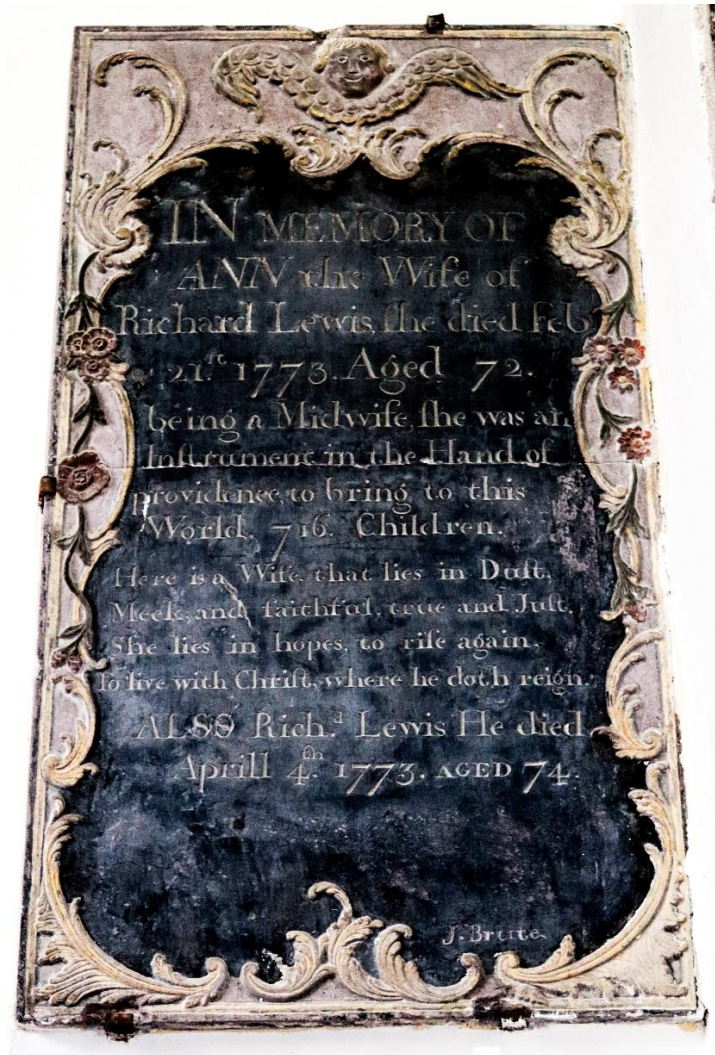 IN MEMORY OF
ANN the Wife of
Richard Lewis, ſhe died Feb
21.ſt 1773. Aged 72.
being a Midwife, ſhe was an
Inſtrument in the Hand of
providence, to bring to this
World, 716. Children.
Here is a Wife, that lies in Duſt,
Meek, and faithful, true and Juſt,
She lies in hopes, to riſe again,
To live with Chriſt, where he doth reign.
ALSO Rich.d Lewis He died
Aprill 4.th 1773. AGED 74.
J. Brute